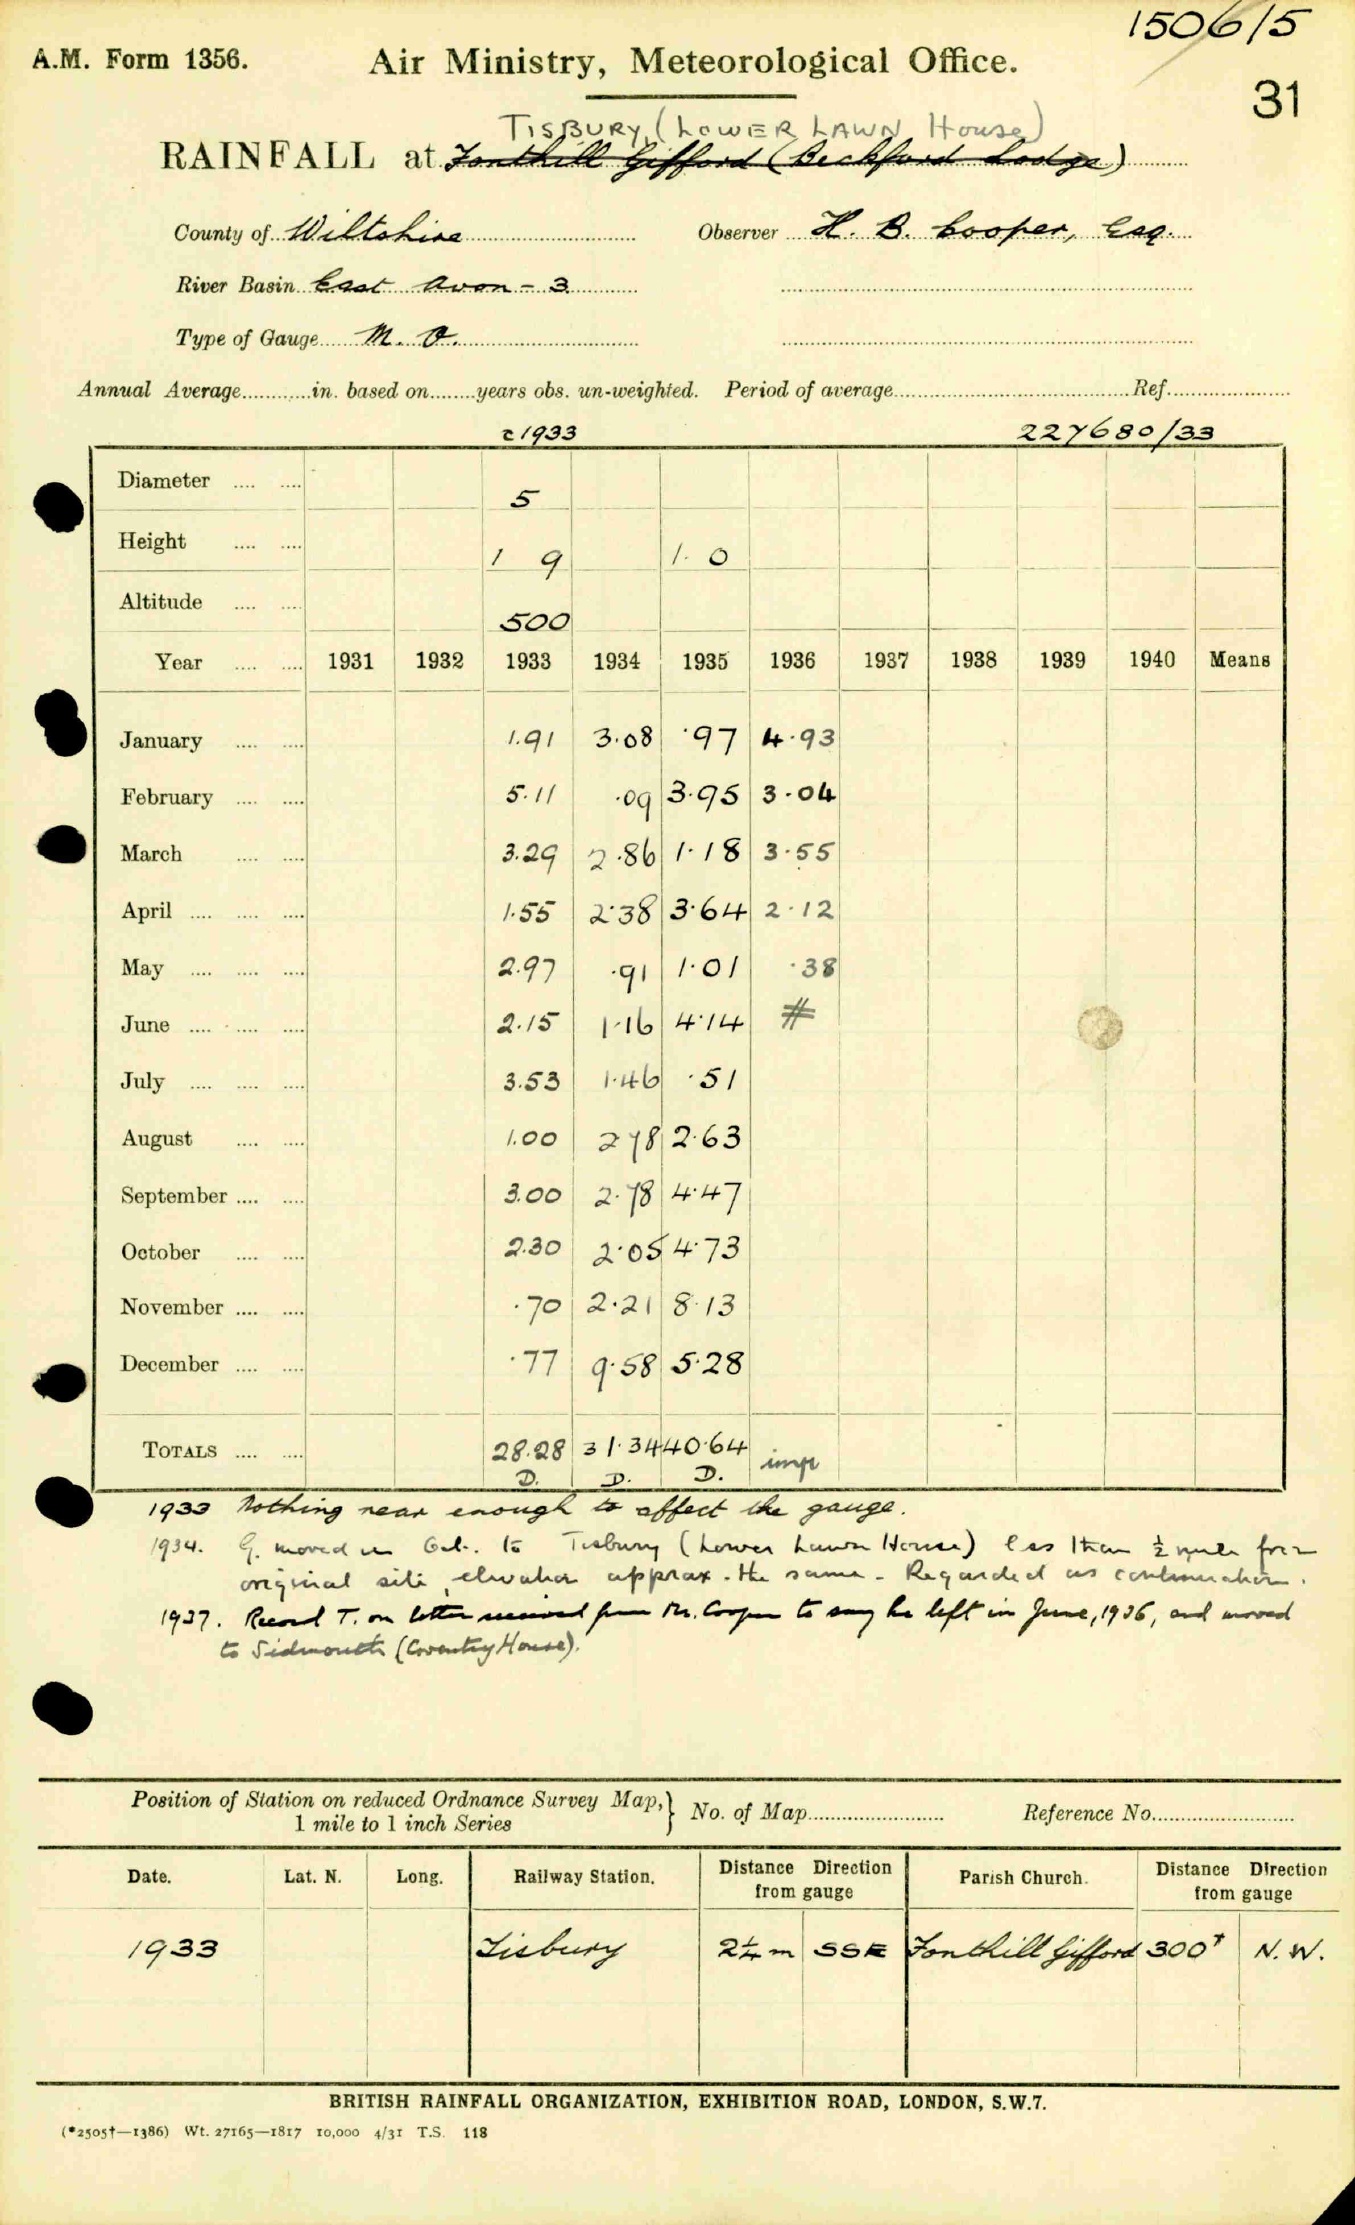 1506/5
A.M. Form 1356. Air Ministry, Meteorological Office.
31
TISBURY, (LOWER LAWN House)
RAINFALL at Fonthill Gifford (Beckford Lodge)
County of Wiltshire Observer H. B. Cooper, Esq.
River Basin East Avon - 3
Type of Gauge M. O.
Annual Average in. based on years obs. un-weighted. Period of average Ref.
1933 227680/33
Diameter 5
Height 1 9 1. 0
Altitude 500
Year 1931 1932 1933 1934 1935 1936 1937 1938 1939 1940 Means
January 1.91 3.08 .97 4.93
February 5.11 .09 3.95 3.04
March 3.29 2.86 1.18 3.55
April 1.55 2.38 3.64 2.12
May 2.97 .91 1.01 .38
June 2.15 1.16 4.14 #
July 3.53 1.46 .51
August 1.00 2 78 2.63
September 3.00 2.78 4.47
October 2.30 2.05 4.73
November .70 2.21 8.13
December .77 9.58 5.28
TOTALS 28.28 31.34 40.64 imp
D. D. D.
1933 Nothing near enough to affect the gauge.
1934. G. moved in Oct. to Tisbury (Lower Lawn House) less than ½ mile from
original site, elevation approx. the same - Regarded as continuation.
1937. Record T. on letter received from Mr. Cooper to say he left in June, 1936, and moved
to Sidmouth (Coventry House).
Position of Station on reduced Ordnance Survey Map,} No. of Map Reference No.
1 mile to 1 inch Series
Date. Lat. N. Long. Railway Station. Distance Direction from gauge Parish Church. Distance Direction from gauge
1933 Tisbury 2¼ m SSE Fonthill Gifford 300 N.W.
BRITISH RAINFALL ORGANIZATION, EXHIBITION ROAD, LONDON, S.W.7.
(*2505†—1386) Wt. 27165—1817 10,000 4/31 T.S. 118